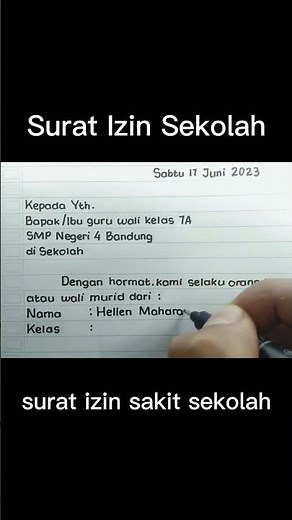 Surat Izin Sekolah
Sabtu 17 Juni 2023
Kepada Yth.
Bapak/Ibu guru wali kelas 7A
SMP Negeri 4 Bandung
di Sekolah
Dengan hormat. kami selaku orang
atau wali murid dari :
Nama : Hellen Mahara
Kelas :
surat izin sakit sekolah